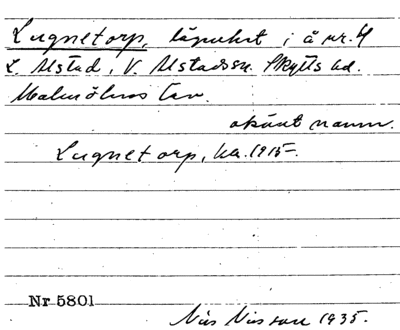 Lugnetorp, lägenhet i å nr. 4
L. Alstad, V. Alstads sn. Skytts hd.
Malmöhus län.
okänt namn.
Lugnetorp, ka. 1915.
Nr 5801
Nils Nilsson 1935.